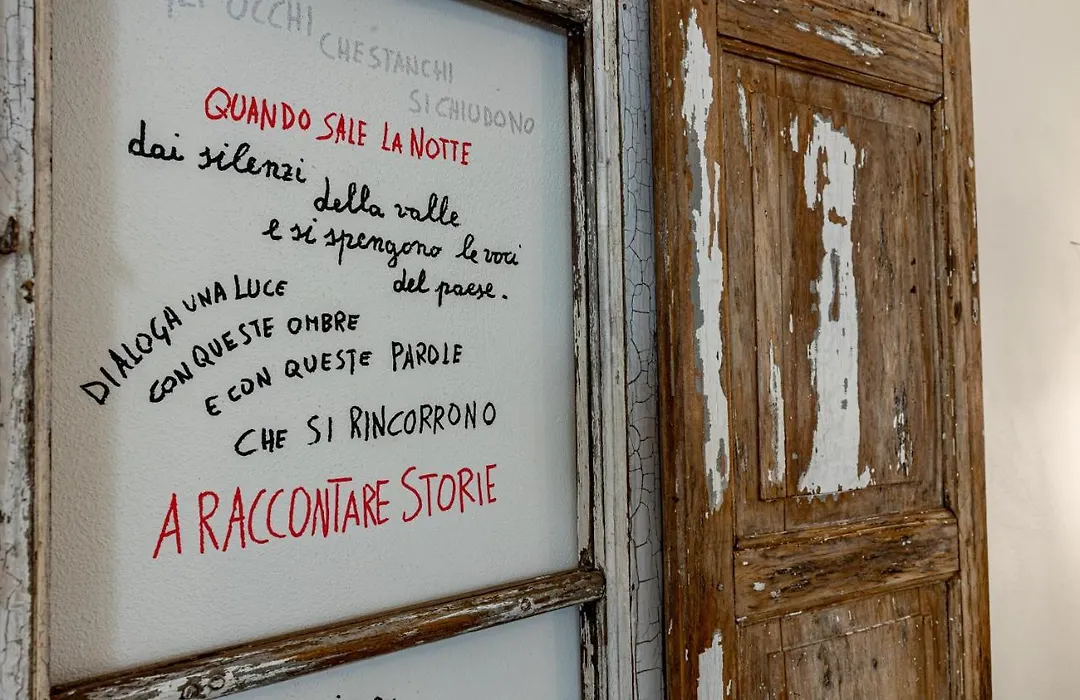 OCCHI
CHE STANCHI
SI CHIUDONO
QUANDO SALE LA NOTTE
dai silenzi
della valle
e si spengono le voci
del paese.
DIALOGA UNA LUCE
CON QUESTE OMBRE
E CON QUESTE PAROLE
CHE SI RINCORRONO
A RACCONTARE STORIE